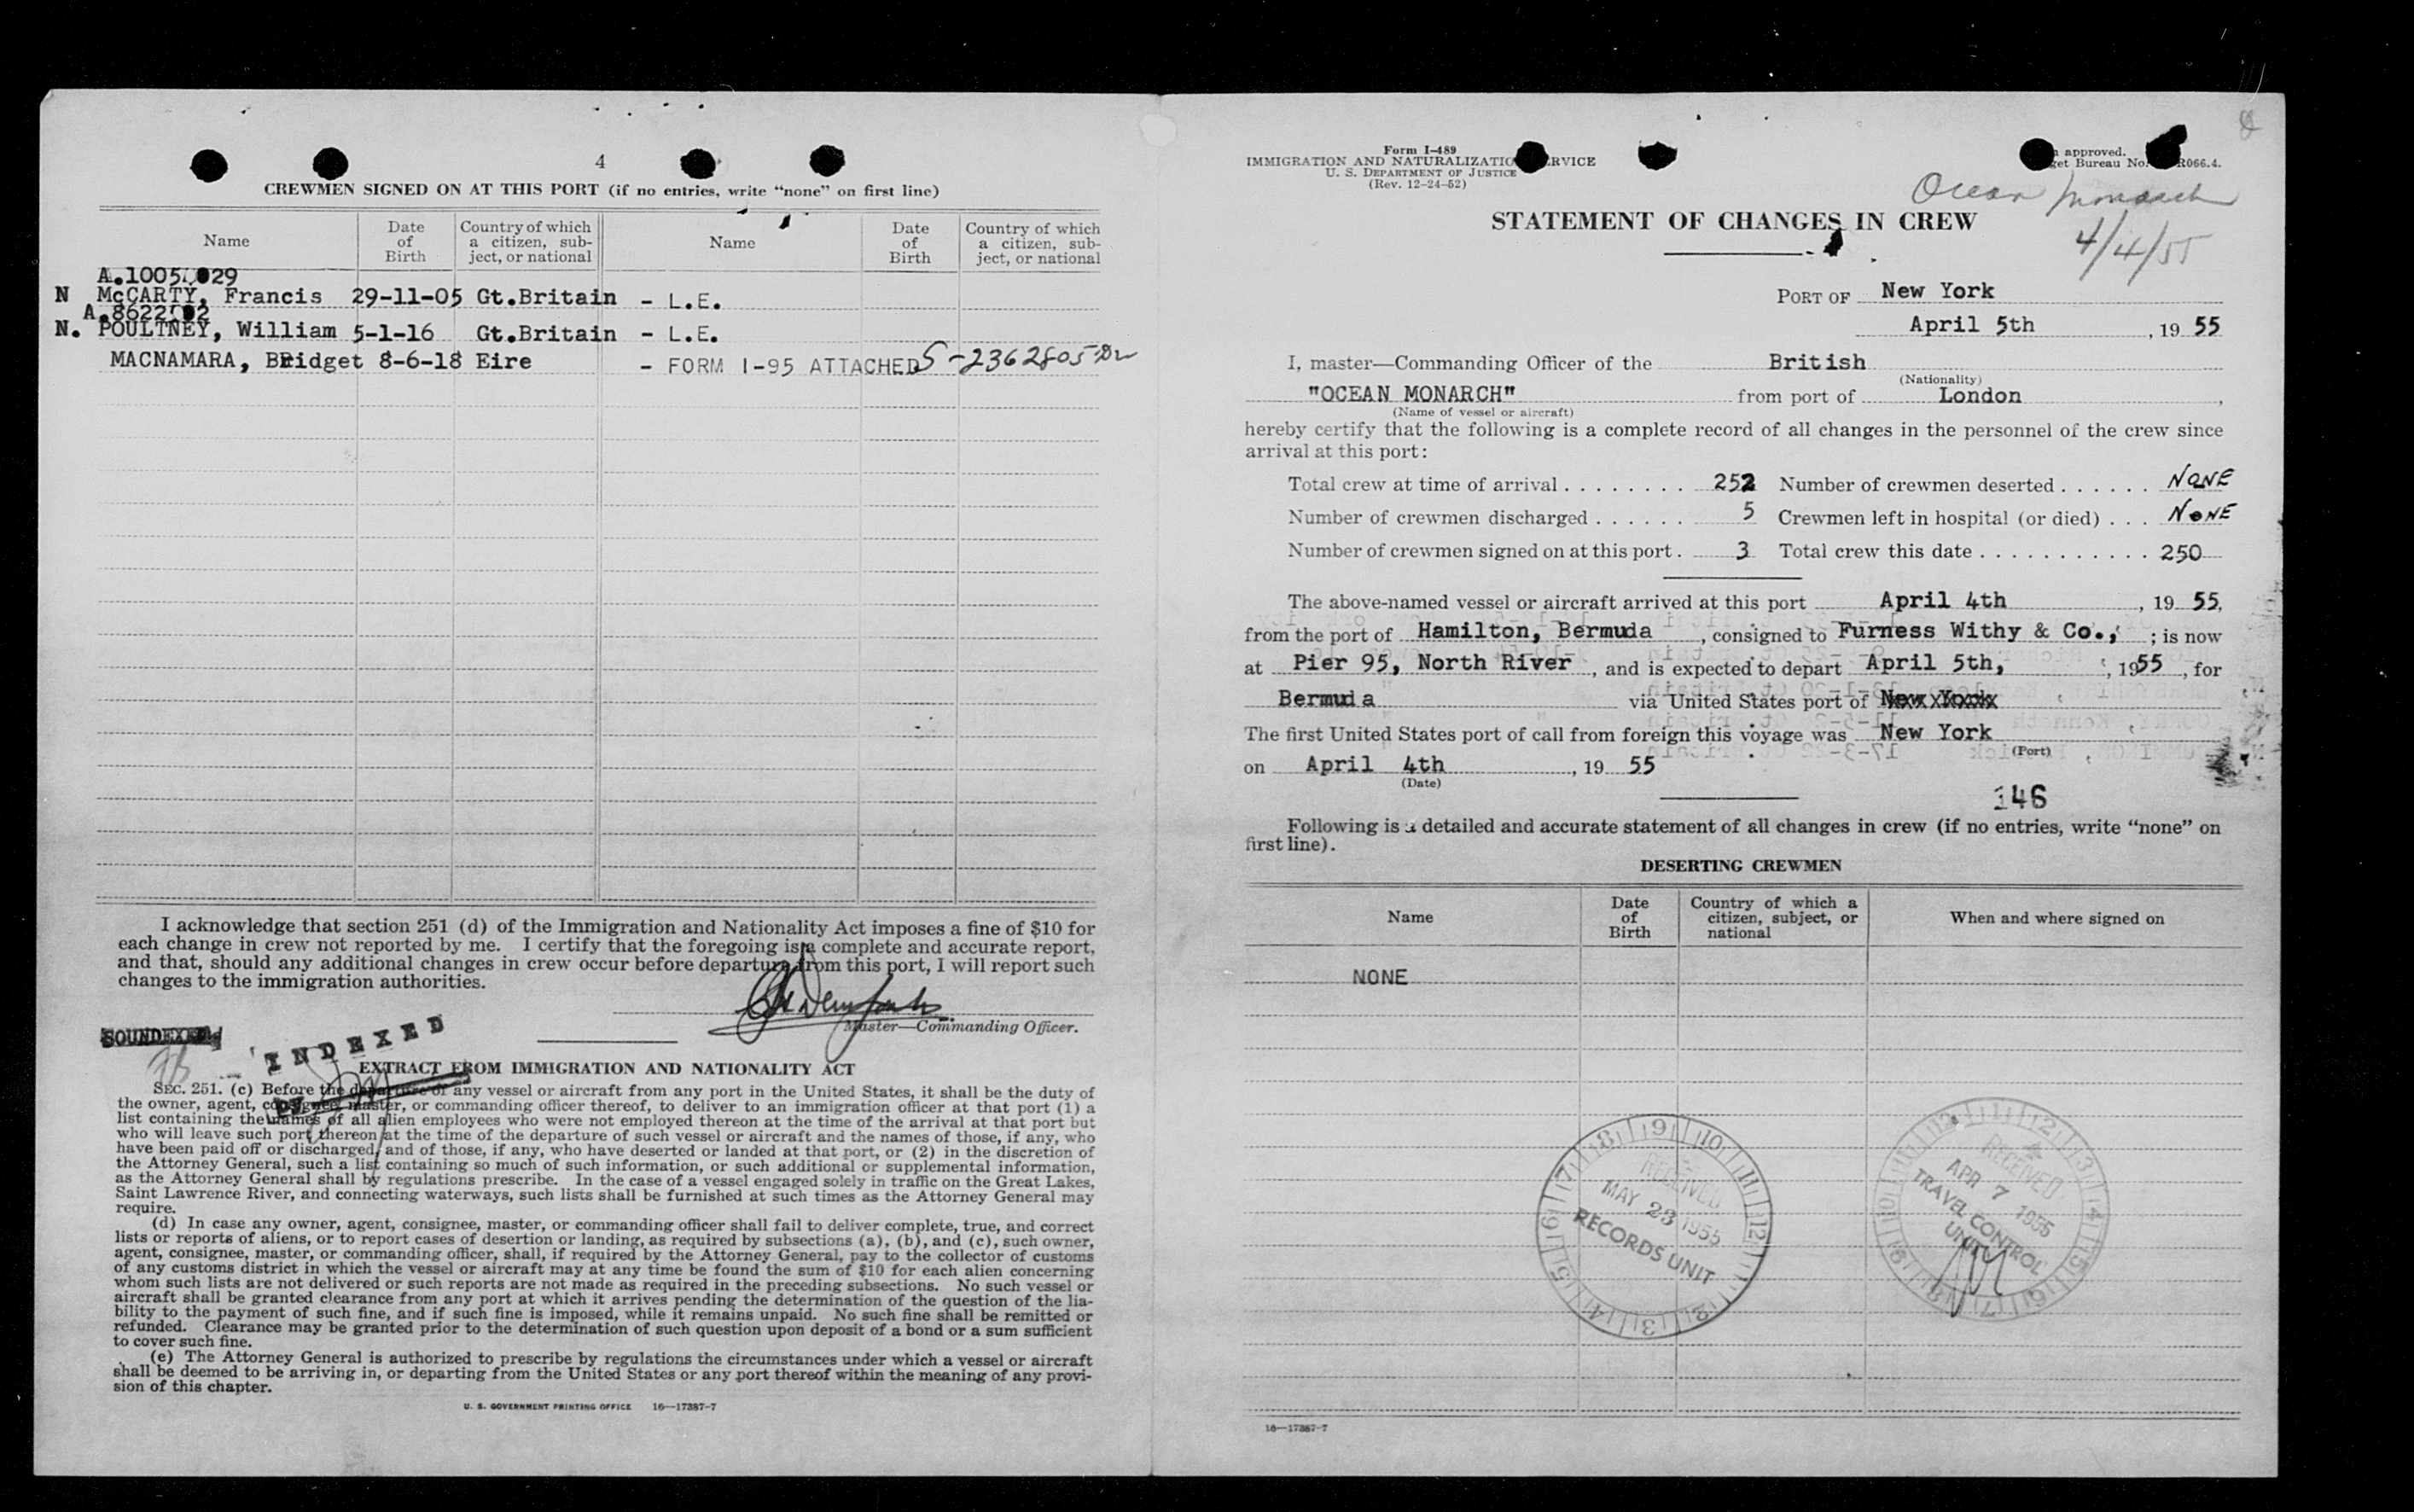 4
CREWMEN SIGNED ON AT THIS PORT (if no entries, write “none” on first line)
Name
Date of Birth
Country of which a citizen, subject, or national
Name
Date of Birth
Country of which a citizen, subject, or national
N McCARTY, Francis 29-11-05 Gt.Britain - L.E.
N. POULTNEY, William 5-1-16 Gt.Britain - L.E.
MACNAMARA, Bridget 8-6-18 Eire - FORM I-95 ATTACHED S-2362805
I acknowledge that section 251 (d) of the Immigration and Nationality Act imposes a fine of $10 for
each change in crew not reported by me. I certify that the foregoing is a complete and accurate report,
and that, should any additional changes in crew occur before departure from this port, I will report such
changes to the immigration authorities.
Master—Commanding Officer.
SOUNDEXED
INDEXED
BY
EXTRACT FROM IMMIGRATION AND NATIONALITY ACT
SEC. 251. (c) Before the departure of any vessel or aircraft from any port in the United States, it shall be the duty of
the owner, agent, consignee, master, or commanding officer thereof, to deliver to an immigration officer at that port (1) a
list containing the names of all alien employees who were not employed thereon at the time of the arrival at that port but
who will leave such port thereon at the time of the departure of such vessel or aircraft and the names of those, if any, who
have been paid off or discharged, and of those, if any, who have deserted or landed at that port, or (2) in the discretion of
the Attorney General, such a list containing so much of such information, or such additional or supplemental information,
as the Attorney General shall by regulations prescribe. In the case of a vessel engaged solely in traffic on the Great Lakes,
Saint Lawrence River, and connecting waterways, such lists shall be furnished at such times as the Attorney General may
require.
(d) In case any owner, agent, consignee, master, or commanding officer shall fail to deliver complete, true, and correct
lists or reports of aliens, or to report cases of desertion or landing, as required by subsections (a), (b), and (c), such owner,
agent, consignee, master, or commanding officer, shall, if required by the Attorney General, pay to the collector of customs
of any customs district in which the vessel or aircraft may at any time be found the sum of $10 for each alien concerning
whom such lists are not delivered or such reports are not made as required in the preceding subsections. No such vessel or
aircraft shall be granted clearance from any port at which it arrives pending the determination of the question of the lia-
bility to the payment of such fine, and if such fine is imposed, while it remains unpaid. No such fine shall be remitted or
refunded. Clearance may be granted prior to the determination of such question upon deposit of a bond or a sum sufficient
to cover such fine.
(e) The Attorney General is authorized to prescribe by regulations the circumstances under which a vessel or aircraft
shall be deemed to be arriving in, or departing from the United States or any port thereof within the meaning of any provi-
sion of this chapter.
U. S. GOVERNMENT PRINTING OFFICE 16—17387-7
Form I-489
IMMIGRATION AND NATURALIZATION SERVICE
U. S. DEPARTMENT OF JUSTICE
(Rev. 12-24-52)
approved.
Bureau No. R066.4.
Ocean Monarch
4/4/55
STATEMENT OF CHANGES IN CREW
PORT OF New York
April 5th, 19 55
I, master—Commanding Officer of the British
(Nationality)
"OCEAN MONARCH" from port of London,
(Name of vessel or aircraft)
hereby certify that the following is a complete record of all changes in the personnel of the crew since
arrival at this port:
Total crew at time of arrival . . . . . . . . 252 Number of crewmen deserted . . . . . . NONE
Number of crewmen discharged . . . . . . 5 Crewmen left in hospital (or died) . . . NONE
Number of crewmen signed on at this port . 3 Total crew this date . . . . . . . . . . . 250
The above-named vessel or aircraft arrived at this port April 4th, 19 55,
from the port of Hamilton, Bermuda, consigned to Furness Withy & Co., ; is now
at Pier 95, North River, and is expected to depart April 5th, , 1955, for
Bermuda via United States port of New York
The first United States port of call from foreign this voyage was New York
(Port)
on April 4th, 19 55
(Date)
146
Following is a detailed and accurate statement of all changes in crew (if no entries, write “none” on
first line).
DESERTING CREWMEN
Name
Date of Birth
Country of which a citizen, subject, or national
When and where signed on
NONE
RECEIVED
MAY 23 1955
RECORDS UNIT
RECEIVED
APR 7 1955
TRAVEL CONTROL
UNIT
16—17387-7